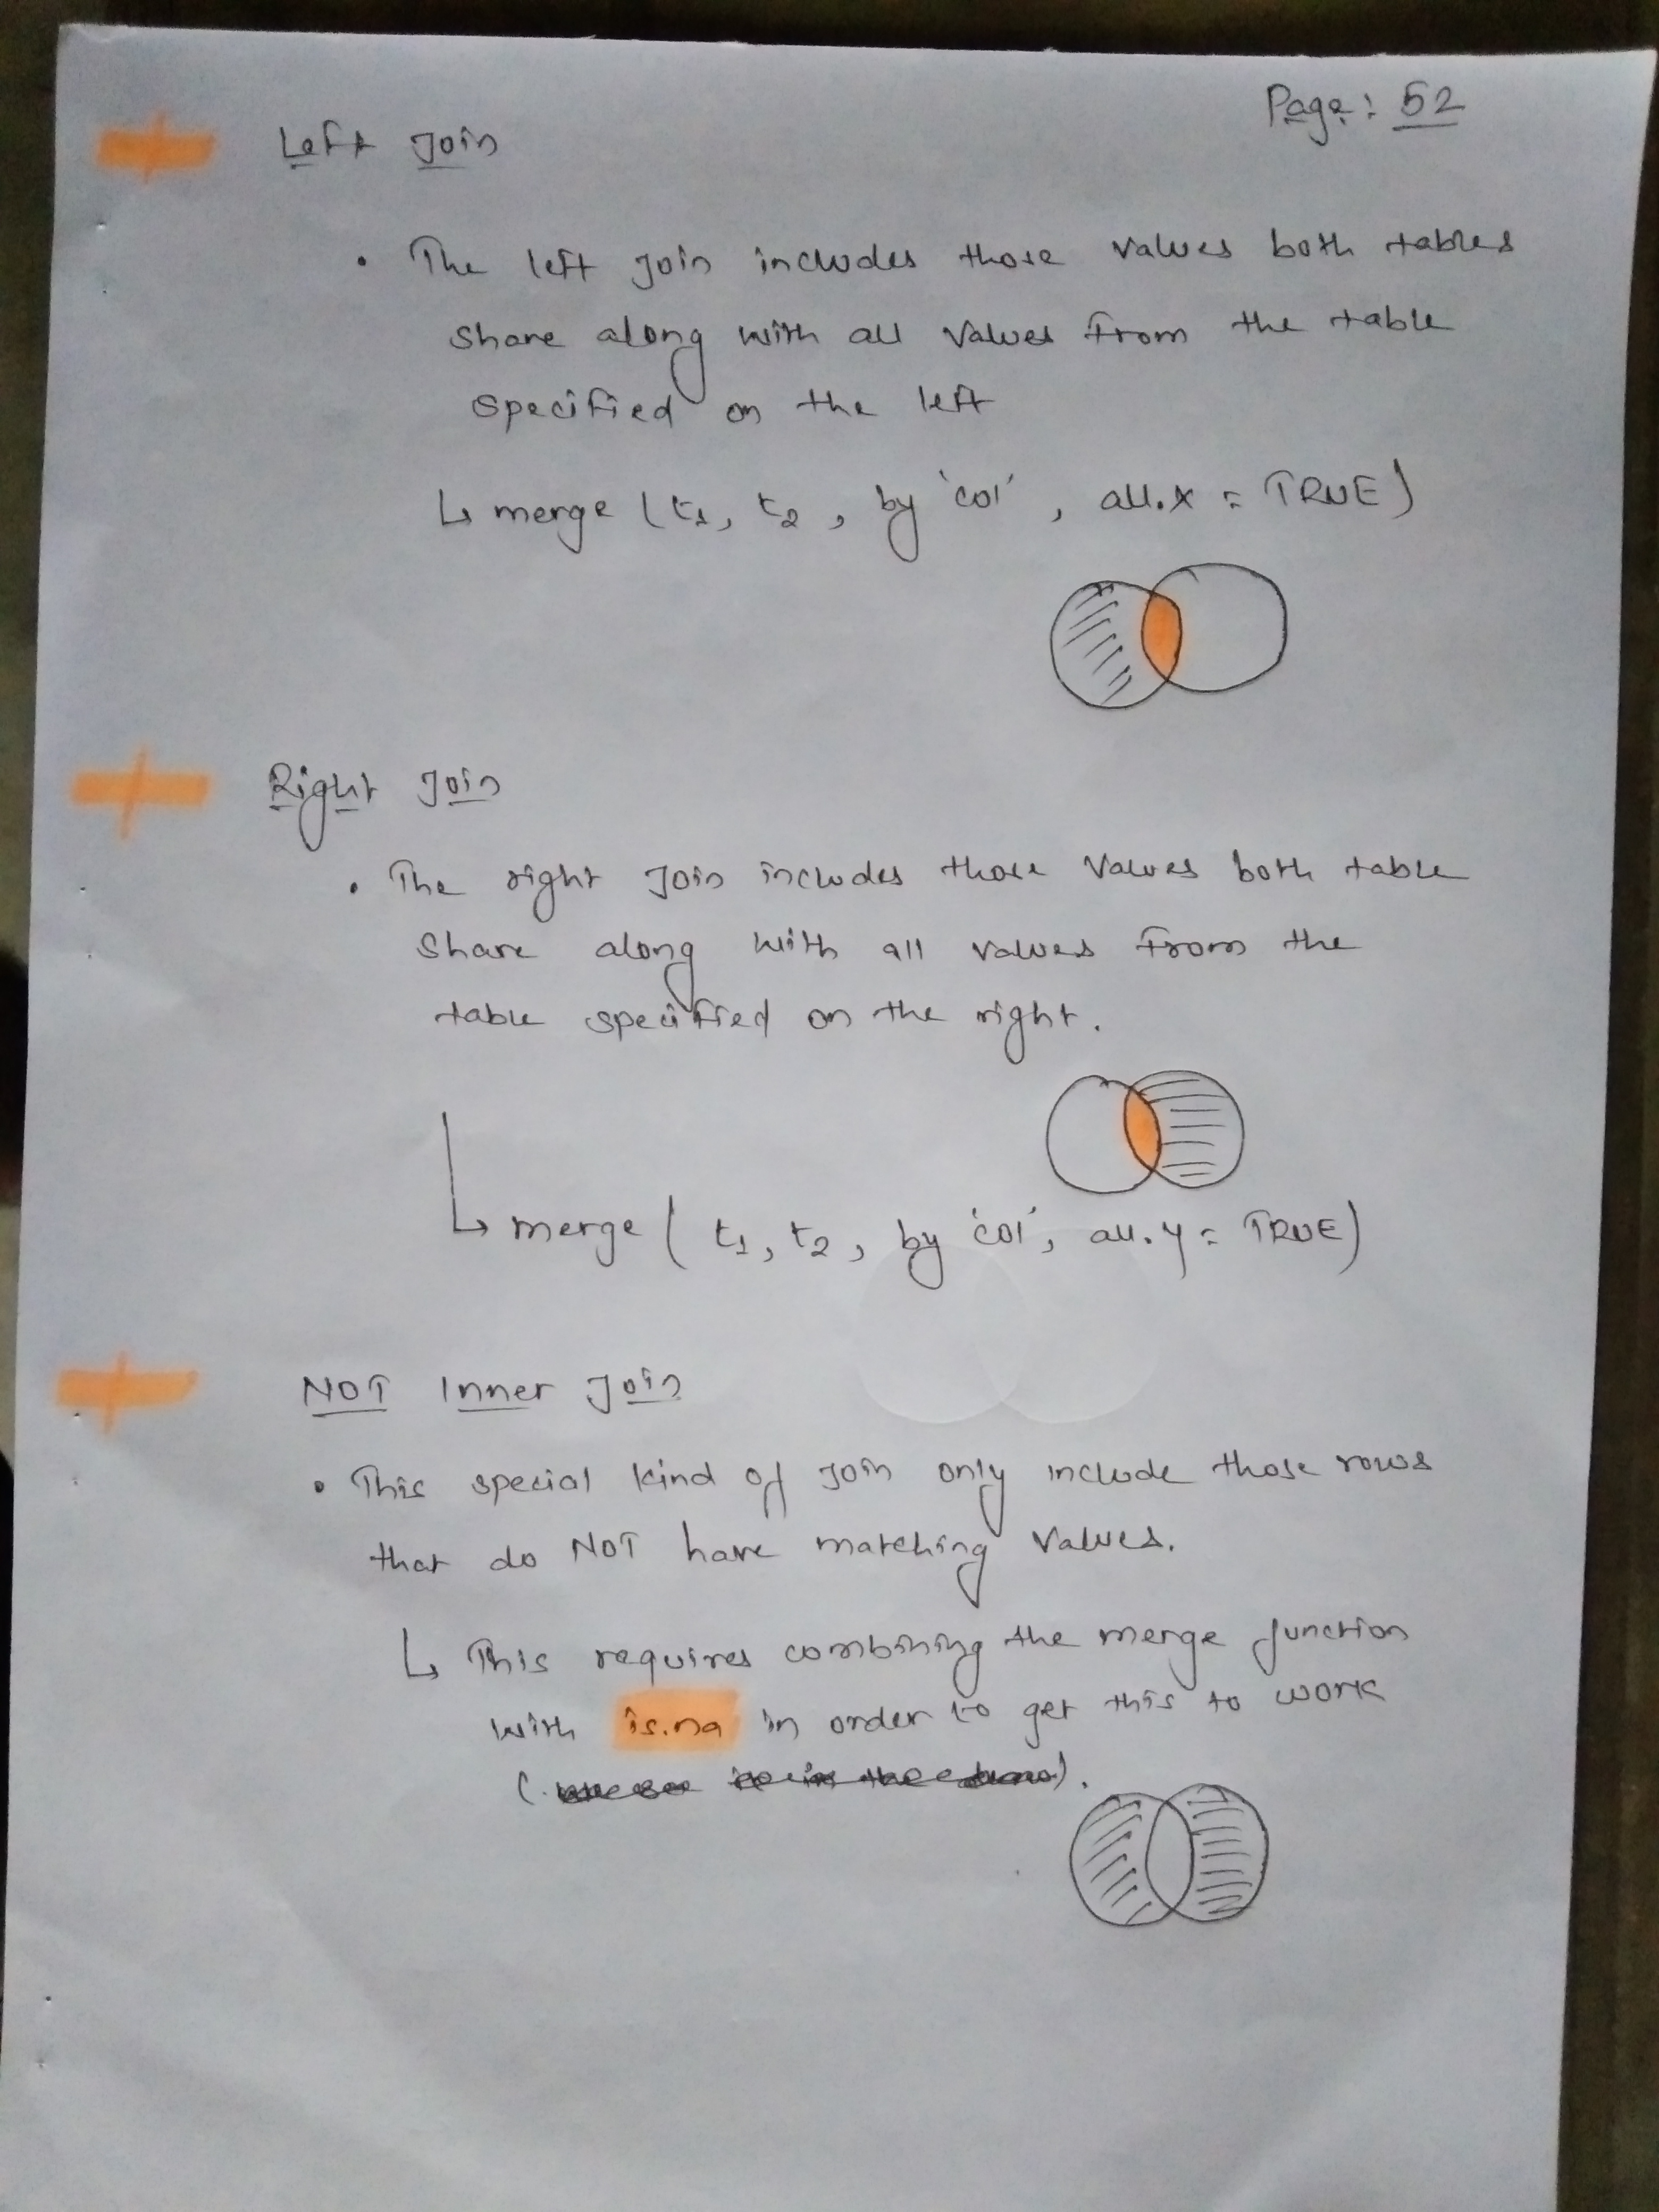 Page: 52
Left Join
• The left Join includes those values both tables
share along with all values from the table
specified on the left
↳ merge (t1, t2, by 'col', all.x = TRUE)
Right Join
• The right Join includes those values both table
share along with all values from the
table specified on the right.
↳ merge ( t1, t2, by 'col', all.y = TRUE)
NOT Inner Join
• This special kind of Join only include those rows
that do NOT have matching values.
↳ This requires combining the merge function
with is.na in order to get this to work